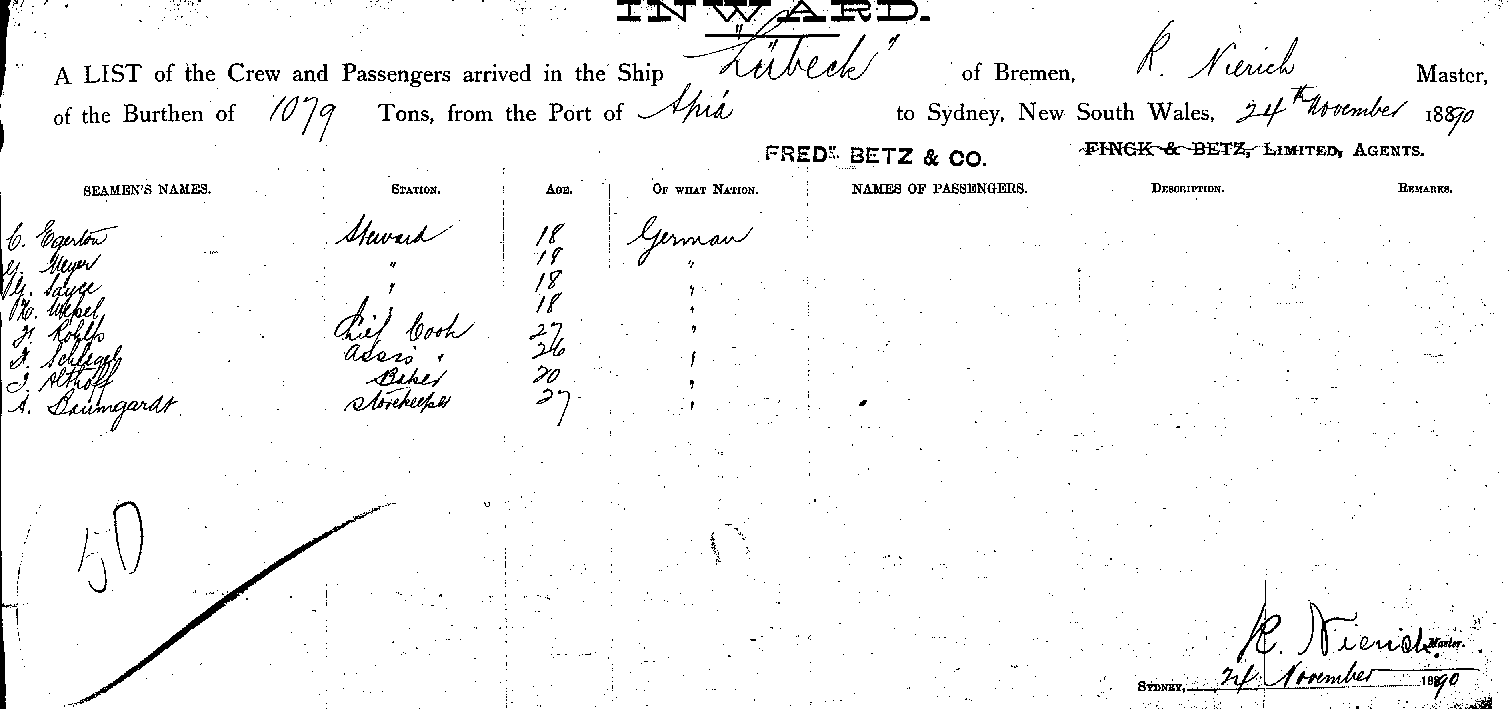 INWARD.
A LIST of the Crew and Passengers arrived in the Ship "Lübeck" of Bremen, R. Nierich Master,
of the Burthen of 1079 Tons, from the Port of Apia to Sydney, New South Wales, 24th November 1890
FREDK. BETZ & CO. FINCK & BETZ, LIMITED, AGENTS.
SEAMEN'S NAMES. STATION. AGE. OF WHAT NATION. NAMES OF PASSENGERS. DESCRIPTION. REMARKS.
C. Egerton Steward 18 German
Meyer " 18 "
Sayce " 18 "
H. Wessel " 18 "
Rohlfs Chief Cook 27 "
Schlegel Assis " 26 "
Althoff Baker 20 "
A. Baumgardt Storekeeper 27 "
50
R. Nierich Master.
SYDNEY, 24 November 1890